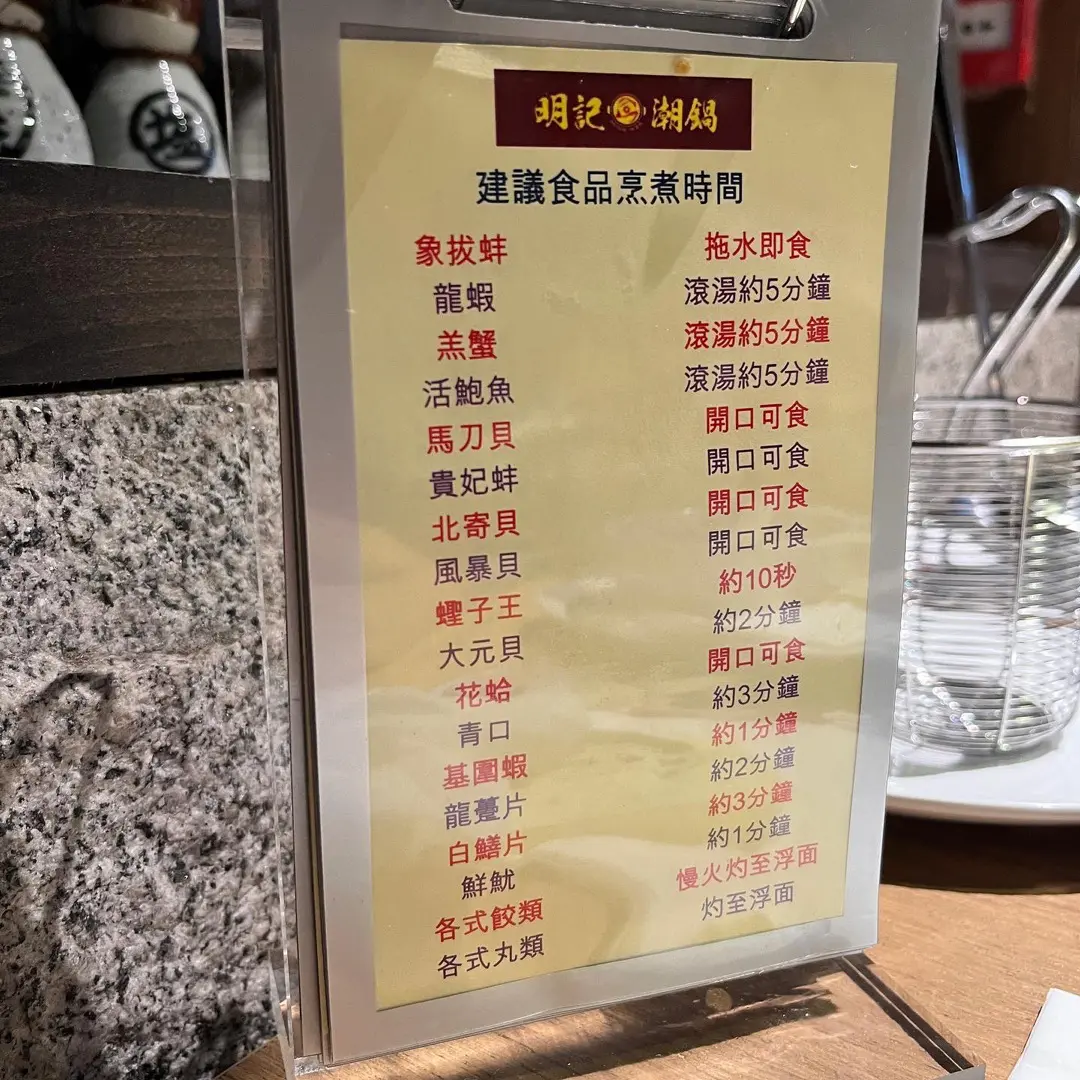 明記潮鍋
建議食品烹煮時間
象拔蚌 拖水即食
龍蝦 滾湯約5分鐘
羔蟹 滾湯約5分鐘
活鮑魚 滾湯約5分鐘
馬刀貝 開口可食
貴妃蚌 開口可食
北寄貝 開口可食
風暴貝 開口可食
蟶子王 約10秒
大元貝 約2分鐘
花蛤 開口可食
青口 約3分鐘
基圍蝦 約1分鐘
龍躉片 約2分鐘
白鱔片 約3分鐘
鮮魷 約1分鐘
各式餃類 慢火灼至浮面
各式丸類 灼至浮面